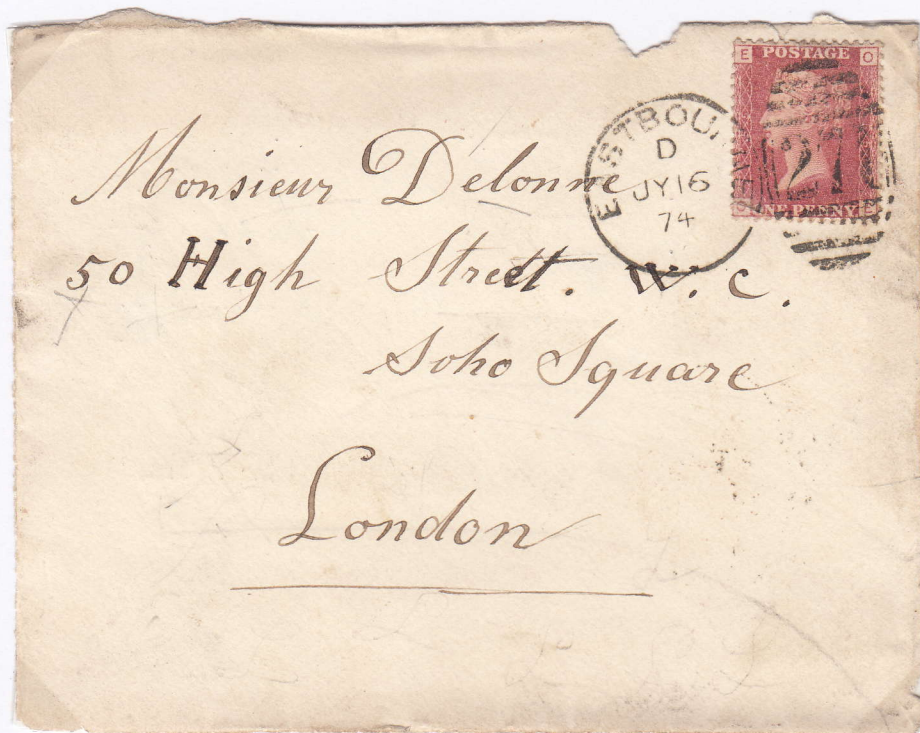 E POSTAGE O
E STBOU
D
JY 16
74
NE PENNY
Monsieur Delonne
50 High Street. W. C.
Soho Square
London